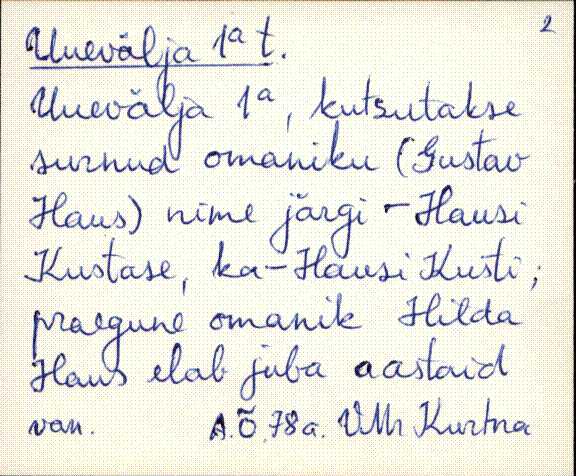 2
Uuevälja 1ª t.
Uuevälja 1ª, kutsutakse
surnud omaniku (Gustav
Haus) nime järgi - Hausi
Kustase, ka - Hausi Kusti;
praegune omanik Hilda
Haus elab juba aastaid
van. A.Õ. 78 a. VMr Kurtna